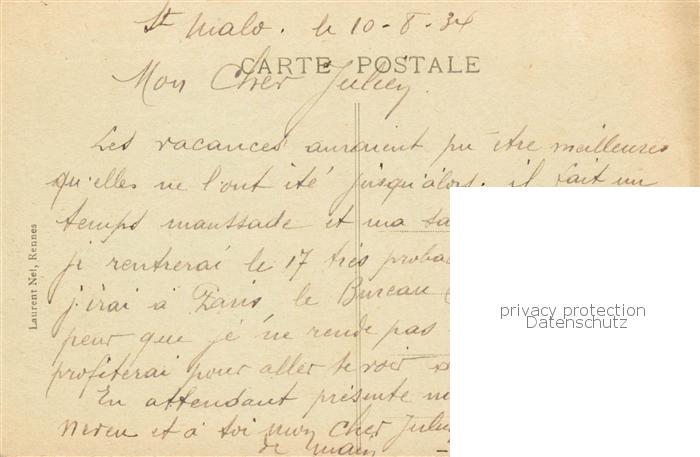 St Malo. le 10-8-34
CARTE POSTALE
Mon Cher Julien.
Les vacances auraient pu être meilleures
qu'elles ne l'ont été jusqu'alors. il fait un
temps maussade et ma
je rentrerai le 17 très
j'irai à Paris le Bureau
peur que je ne rende pas
profiterai pour aller te voir
En attendant présente
neveu et à toi mon cher
de main
Laurent Nel, Rennes
privacy protection
Datenschutz